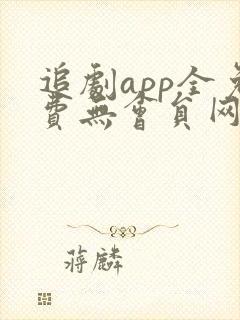 追劇app全免
費無會員网
蔣麟